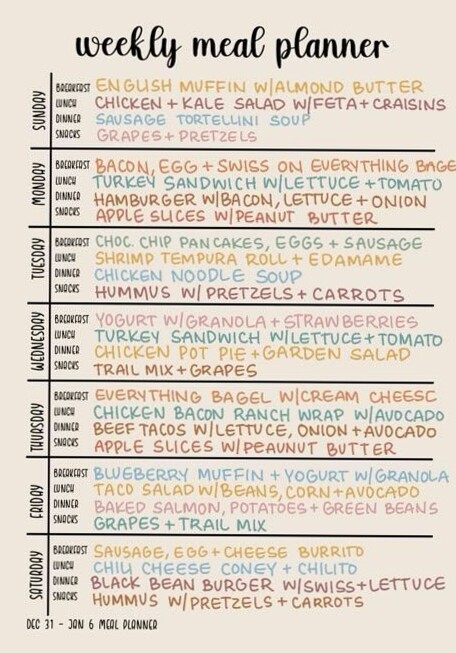 weekly meal planner
SUNDAY
BREAKFAST ENGLISH MUFFIN W/ALMOND BUTTER
LUNCH CHICKEN + KALE SALAD W/FETA + CRAISINS
DINNER SAUSAGE TORTELLINI SOUP
SNACKS GRAPES + PRETZELS
MONDAY
BREAKFAST BACON, EGG + SWISS ON EVERYTHING BAGE
LUNCH TURKEY SANDWICH W/LETTUCE + TOMATO
DINNER HAMBURGER W/BACON, LETTUCE + ONION
SNACKS APPLE SLICES W/PEANUT BUTTER
TUESDAY
BREAKFAST CHOC. CHIP PANCAKES, EGGS + SAUSAGE
LUNCH SHRIMP TEMPURA ROLL + EDAMAME
DINNER CHICKEN NOODLE SOUP
SNACKS HUMMUS W/PRETZELS + CARROTS
WEDNESDAY
BREAKFAST YOGURT W/GRANOLA + STRAWBERRIES
LUNCH TURKEY SANDWICH W/LETTUCE + TOMATO
DINNER CHICKEN POT PIE + GARDEN SALAD
SNACKS TRAIL MIX + GRAPES
THURSDAY
BREAKFAST EVERYTHING BAGEL W/CREAM CHEESE
LUNCH CHICKEN BACON RANCH WRAP W/AVOCADO
DINNER BEEF TACOS W/LETTUCE, ONION + AVOCADO
SNACKS APPLE SLICES W/PEAUNUT BUTTER
FRIDAY
BREAKFAST BLUEBERRY MUFFIN + YOGURT W/GRANOLA
LUNCH TACO SALAD W/BEANS, CORN + AVOCADO
DINNER BAKED SALMON, POTATOES + GREEN BEANS
SNACKS GRAPES + TRAIL MIX
SATURDAY
BREAKFAST SAUSAGE, EGG + CHEESE BURRITO
LUNCH CHILI CHEESE CONEY + CHILITO
DINNER BLACK BEAN BURGER W/SWISS + LETTUCE
SNACKS HUMMUS W/PRETZELS + CARROTS
DEC 31 - JAN 6 MEAL PLANNER